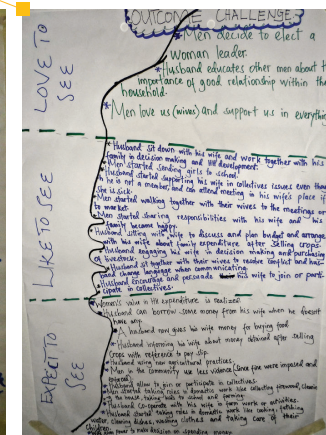 OUTCOME CHALLENGE
LOVE TO SEE
* Men decide to elect a
woman leader.
* Husband educates other men about t
importance of good relationship within the
household.
* Men love us (wives) and support us in everything
LIKE TO SEE
* Husband sit down with his wife and work together with his
family in decision making and HH development.
* Men started sending girls to school.
* Husband started supporting his wife in collectives issues even though
he is not a member, and can attend meeting in his wife's place if
she is sick.
* Men started walking together with their wives to the meetings or
to market.
* Men started sharing responsibilities with his wife and his
family become happy.
* Husband sitting with wife to discuss and plan budget and arrange
with his wife about family expenditure after selling crops
* Husband engaging his wife in decision making and purchasing
of livestock.
* Husband sit together with their wives to resolve conflict and have
changed language when communicating.
* Husband encourage and persuade his wife to join or parti-
cipate in collectives.
EXPECT TO SEE
* Women's value in HH expenditure is realized
* Husband can borrow some money from his wife when he doesn't
have any.
* A husband now gives his wife money for buying food
* Husband informing his wife about money obtained after selling
crops with reference to pay slip.
* Husband using new agricultural practices.
* Men in the community use less violence since fine were imposed and
* Husband allow to join or participate in collectives.
* Men started taking roles in domestic work like collecting firewood, cleaning
the house, taking kids to school and farming.
* Husband co-operate with his wife in farm works or activities.
* Husband started taking roles in domestic work like cooking, fetching
water, cleaning dishes, washing clothes and taking care of their
children.
power to make decision on spending money.